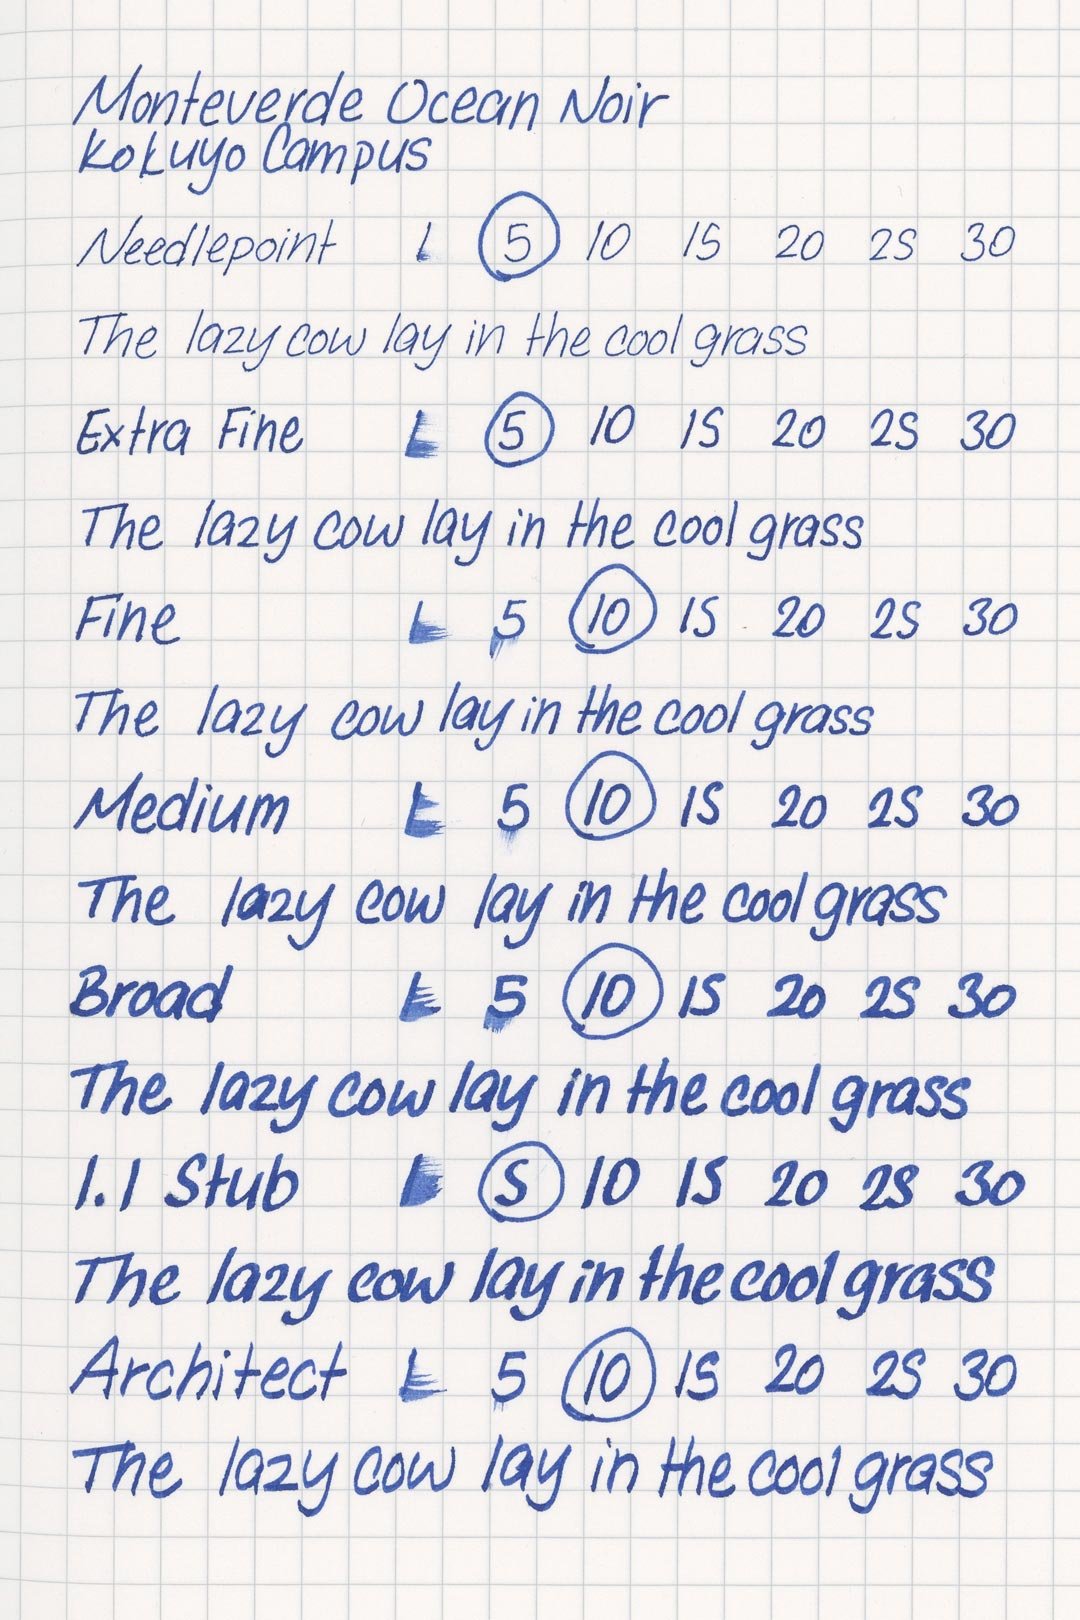 Monteverde Ocean Noir
Kokuyo Campus
Needlepoint 1 5 10 15 20 25 30
The lazy cow lay in the cool grass
Extra Fine 1 5 10 15 20 25 30
The lazy cow lay in the cool grass
Fine 1 5 10 15 20 25 30
The lazy cow lay in the cool grass
Medium 1 5 10 15 20 25 30
The lazy cow lay in the cool grass
Broad 1 5 10 15 20 25 30
The lazy cow lay in the cool grass
1.1 Stub 1 5 10 15 20 25 30
The lazy cow lay in the cool grass
Architect 1 5 10 15 20 25 30
The lazy cow lay in the cool grass